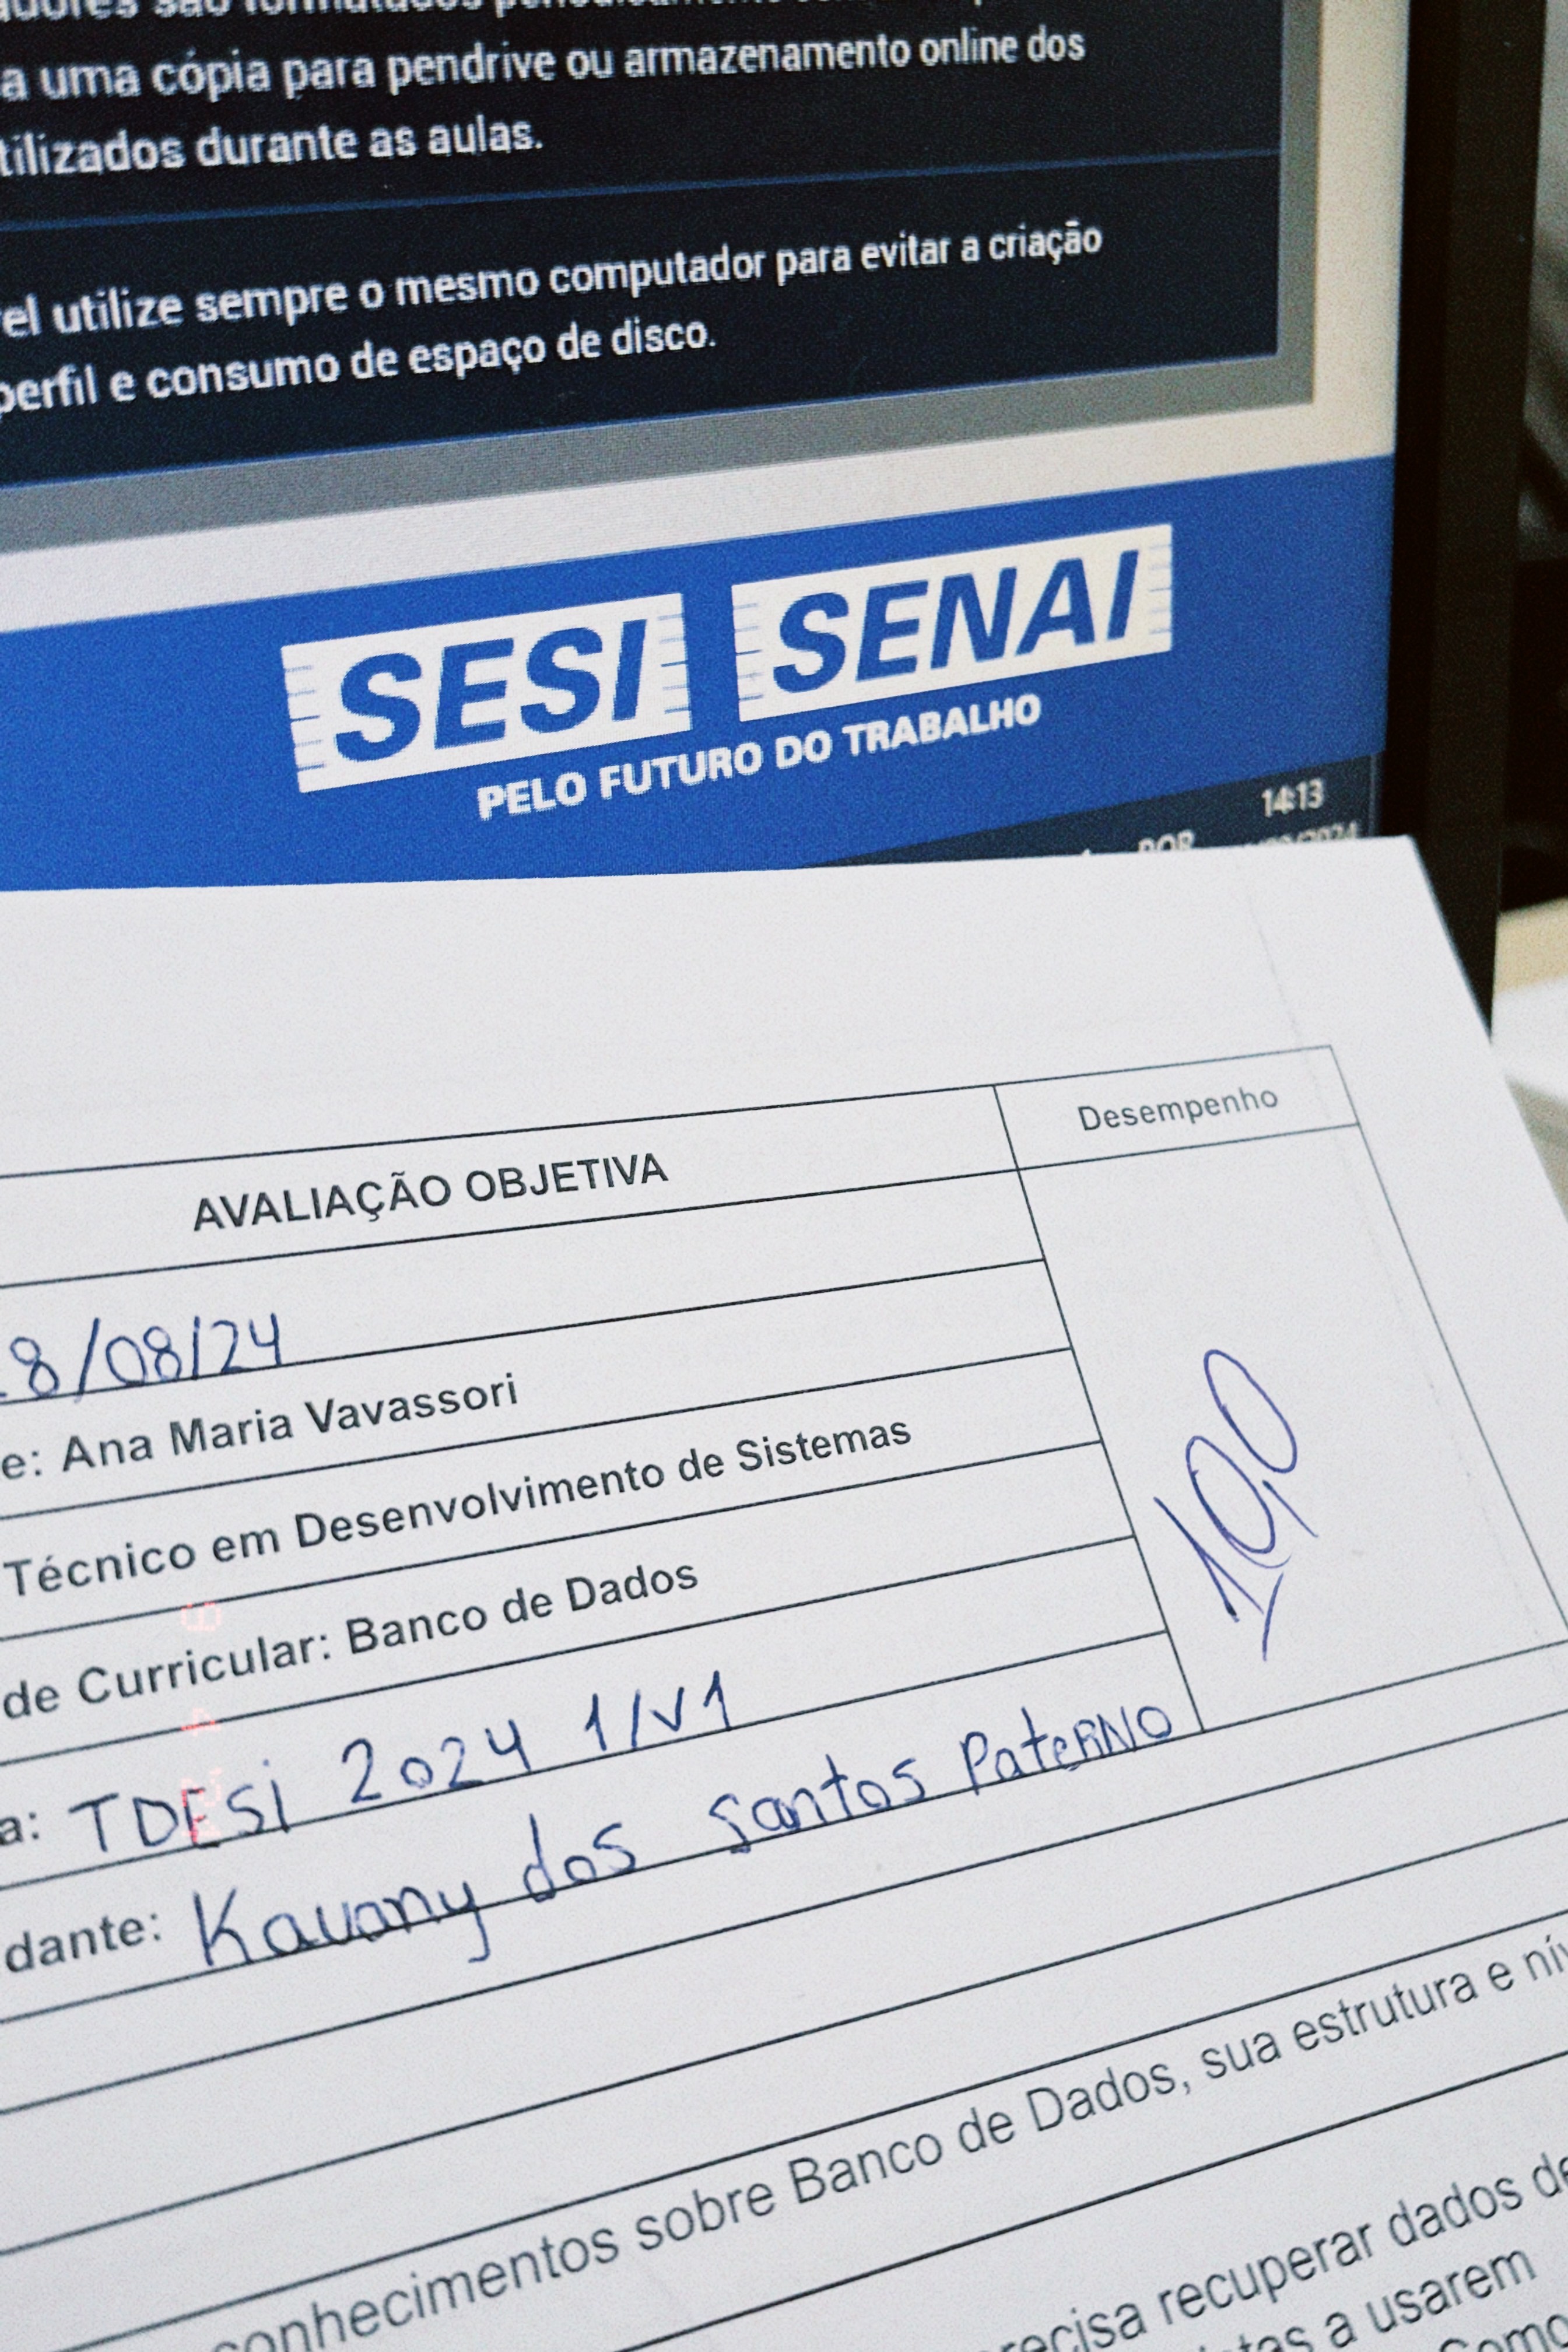 adores são formatados periodicamente
a uma cópia para pendrive ou armazenamento online dos
tilizados durante as aulas.
el utilize sempre o mesmo computador para evitar a criação
perfil e consumo de espaço de disco.
SESI SENAI
PELO FUTURO DO TRABALHO
14:13
POR
AVALIAÇÃO OBJETIVA
Desempenho
8/08/24
10,0
e: Ana Maria Vavassori
Técnico em Desenvolvimento de Sistemas
de Curricular: Banco de Dados
a: TDESi 2024 1/V1
dante: Kauany dos Santos PateRNO
onhecimentos sobre Banco de Dados, sua estrutura e nív
recisa recuperar dados de
a usarem
Como